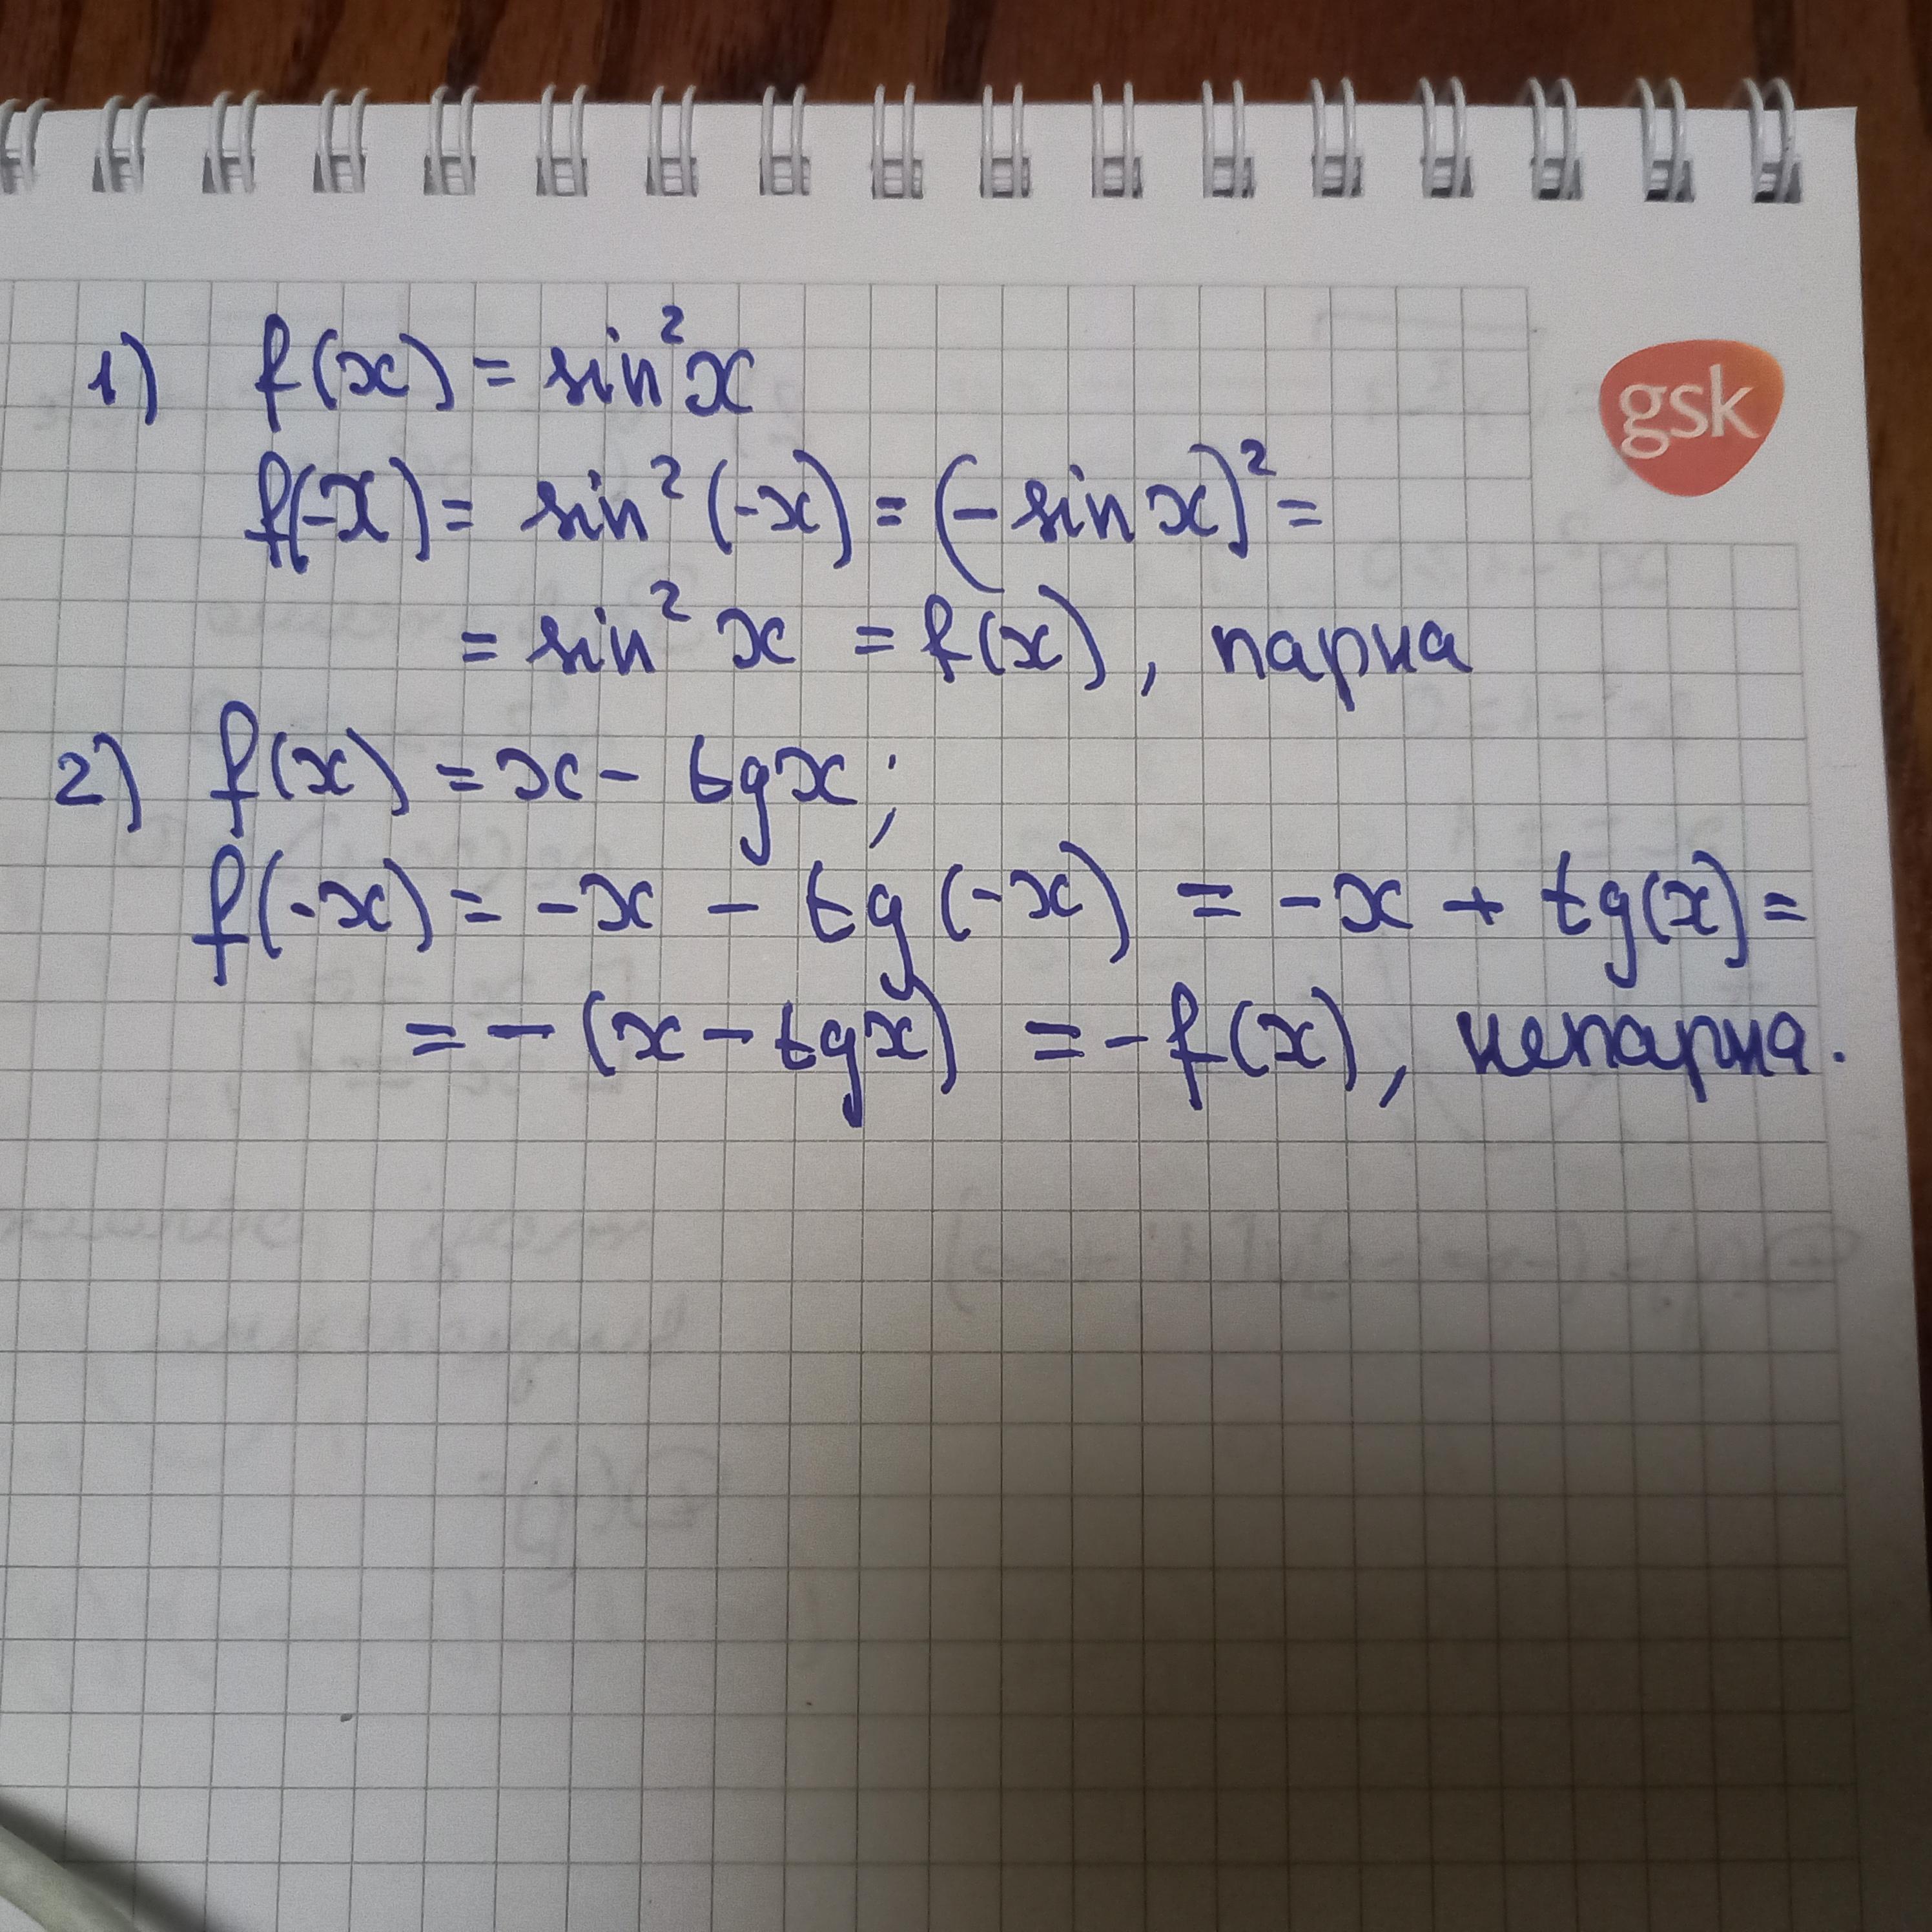 1) f(x) = sin²x
gsk
f(-x) = sin²(-x) = (-sin x)² =
= sin² x = f(x), парна
2) f(x) = x - tgx;
f(-x) = -x - tg(-x) = -x + tg(x) =
= -(x - tgx) = -f(x), непарна.